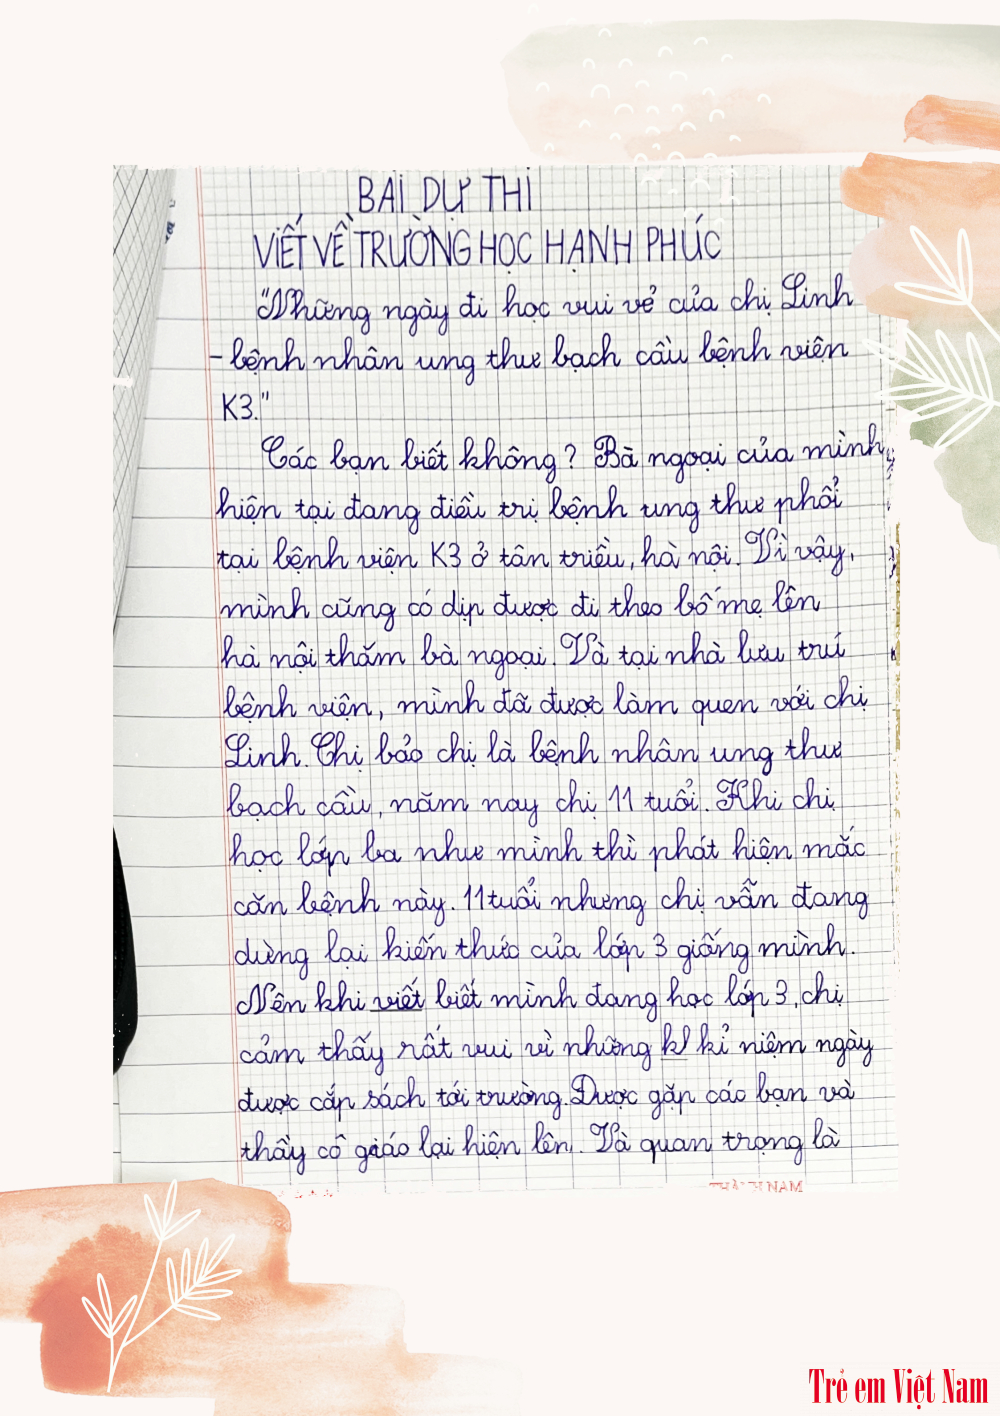 BÀI DỰ THI
VIẾT VỀ TRƯỜNG HỌC HẠNH PHÚC
"Những ngày đi học vui vẻ của chị Linh
- bệnh nhân ung thư bạch cầu bệnh viện
K3."
Các bạn biết không? Bà ngoại của mình
hiện tại đang điều trị bệnh ung thư phổi
tại bệnh viện K3 ở tân triều, hà nội. Vì vậy,
mình cũng có dịp được đi theo bố mẹ lên
hà nội thăm bà ngoại. Và tại nhà lưu trú
bệnh viện, mình đã được làm quen với chị
Linh. Chị bảo chị là bệnh nhân ung thư
bạch cầu, năm nay chị 11 tuổi. Khi chị
học lớp ba như mình thì phát hiện mắc
căn bệnh này. 11 tuổi nhưng chị vẫn đang
dừng lại kiến thức của lớp 3 giống mình.
Nên khi viết biết mình đang học lớp 3, chị
cảm thấy rất vui vì những kỉ niệm ngày
được cắp sách tới trường. Được gặp các bạn và
thầy cô giáo lại hiện lên. Và quan trọng là
THÀNH NAM
Trẻ em Việt Nam